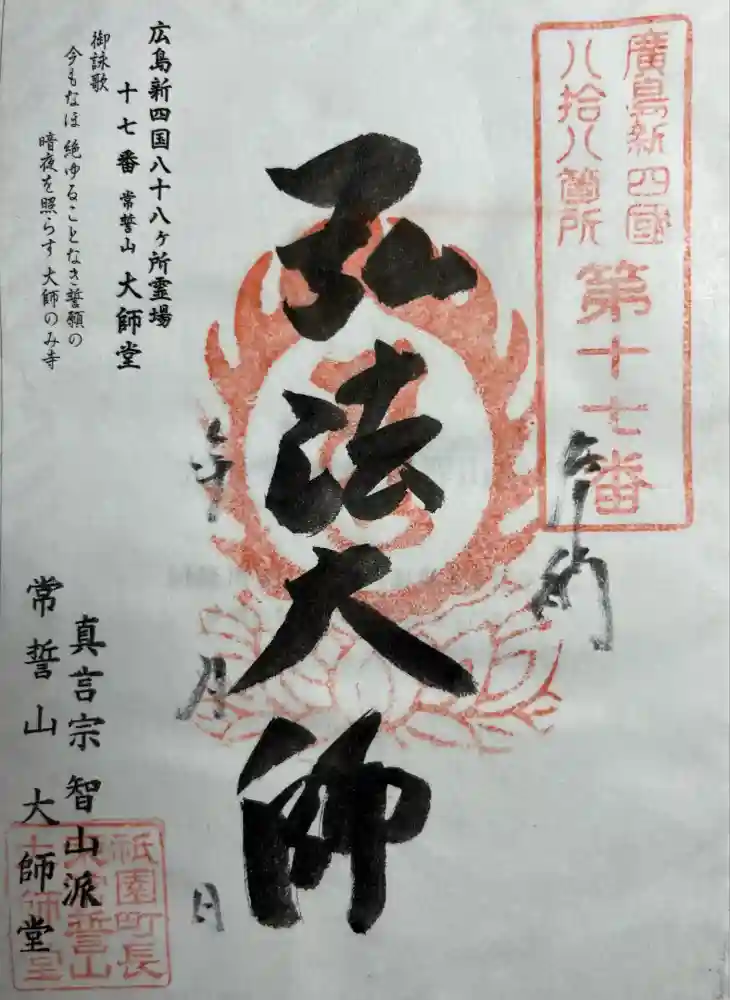 廣島新四國
八拾八箇所
第十七番
奉納
弘法大師
年
月
日
広島新四国八十八ヶ所霊場
十七番 常誓山 大師堂
御詠歌
今もなほ 絶ゆることなき誓願の
暗夜を照らす 大師のみ寺
真言宗 智山派
常誓山 大師堂
祇園町長
東常誓山
大師堂